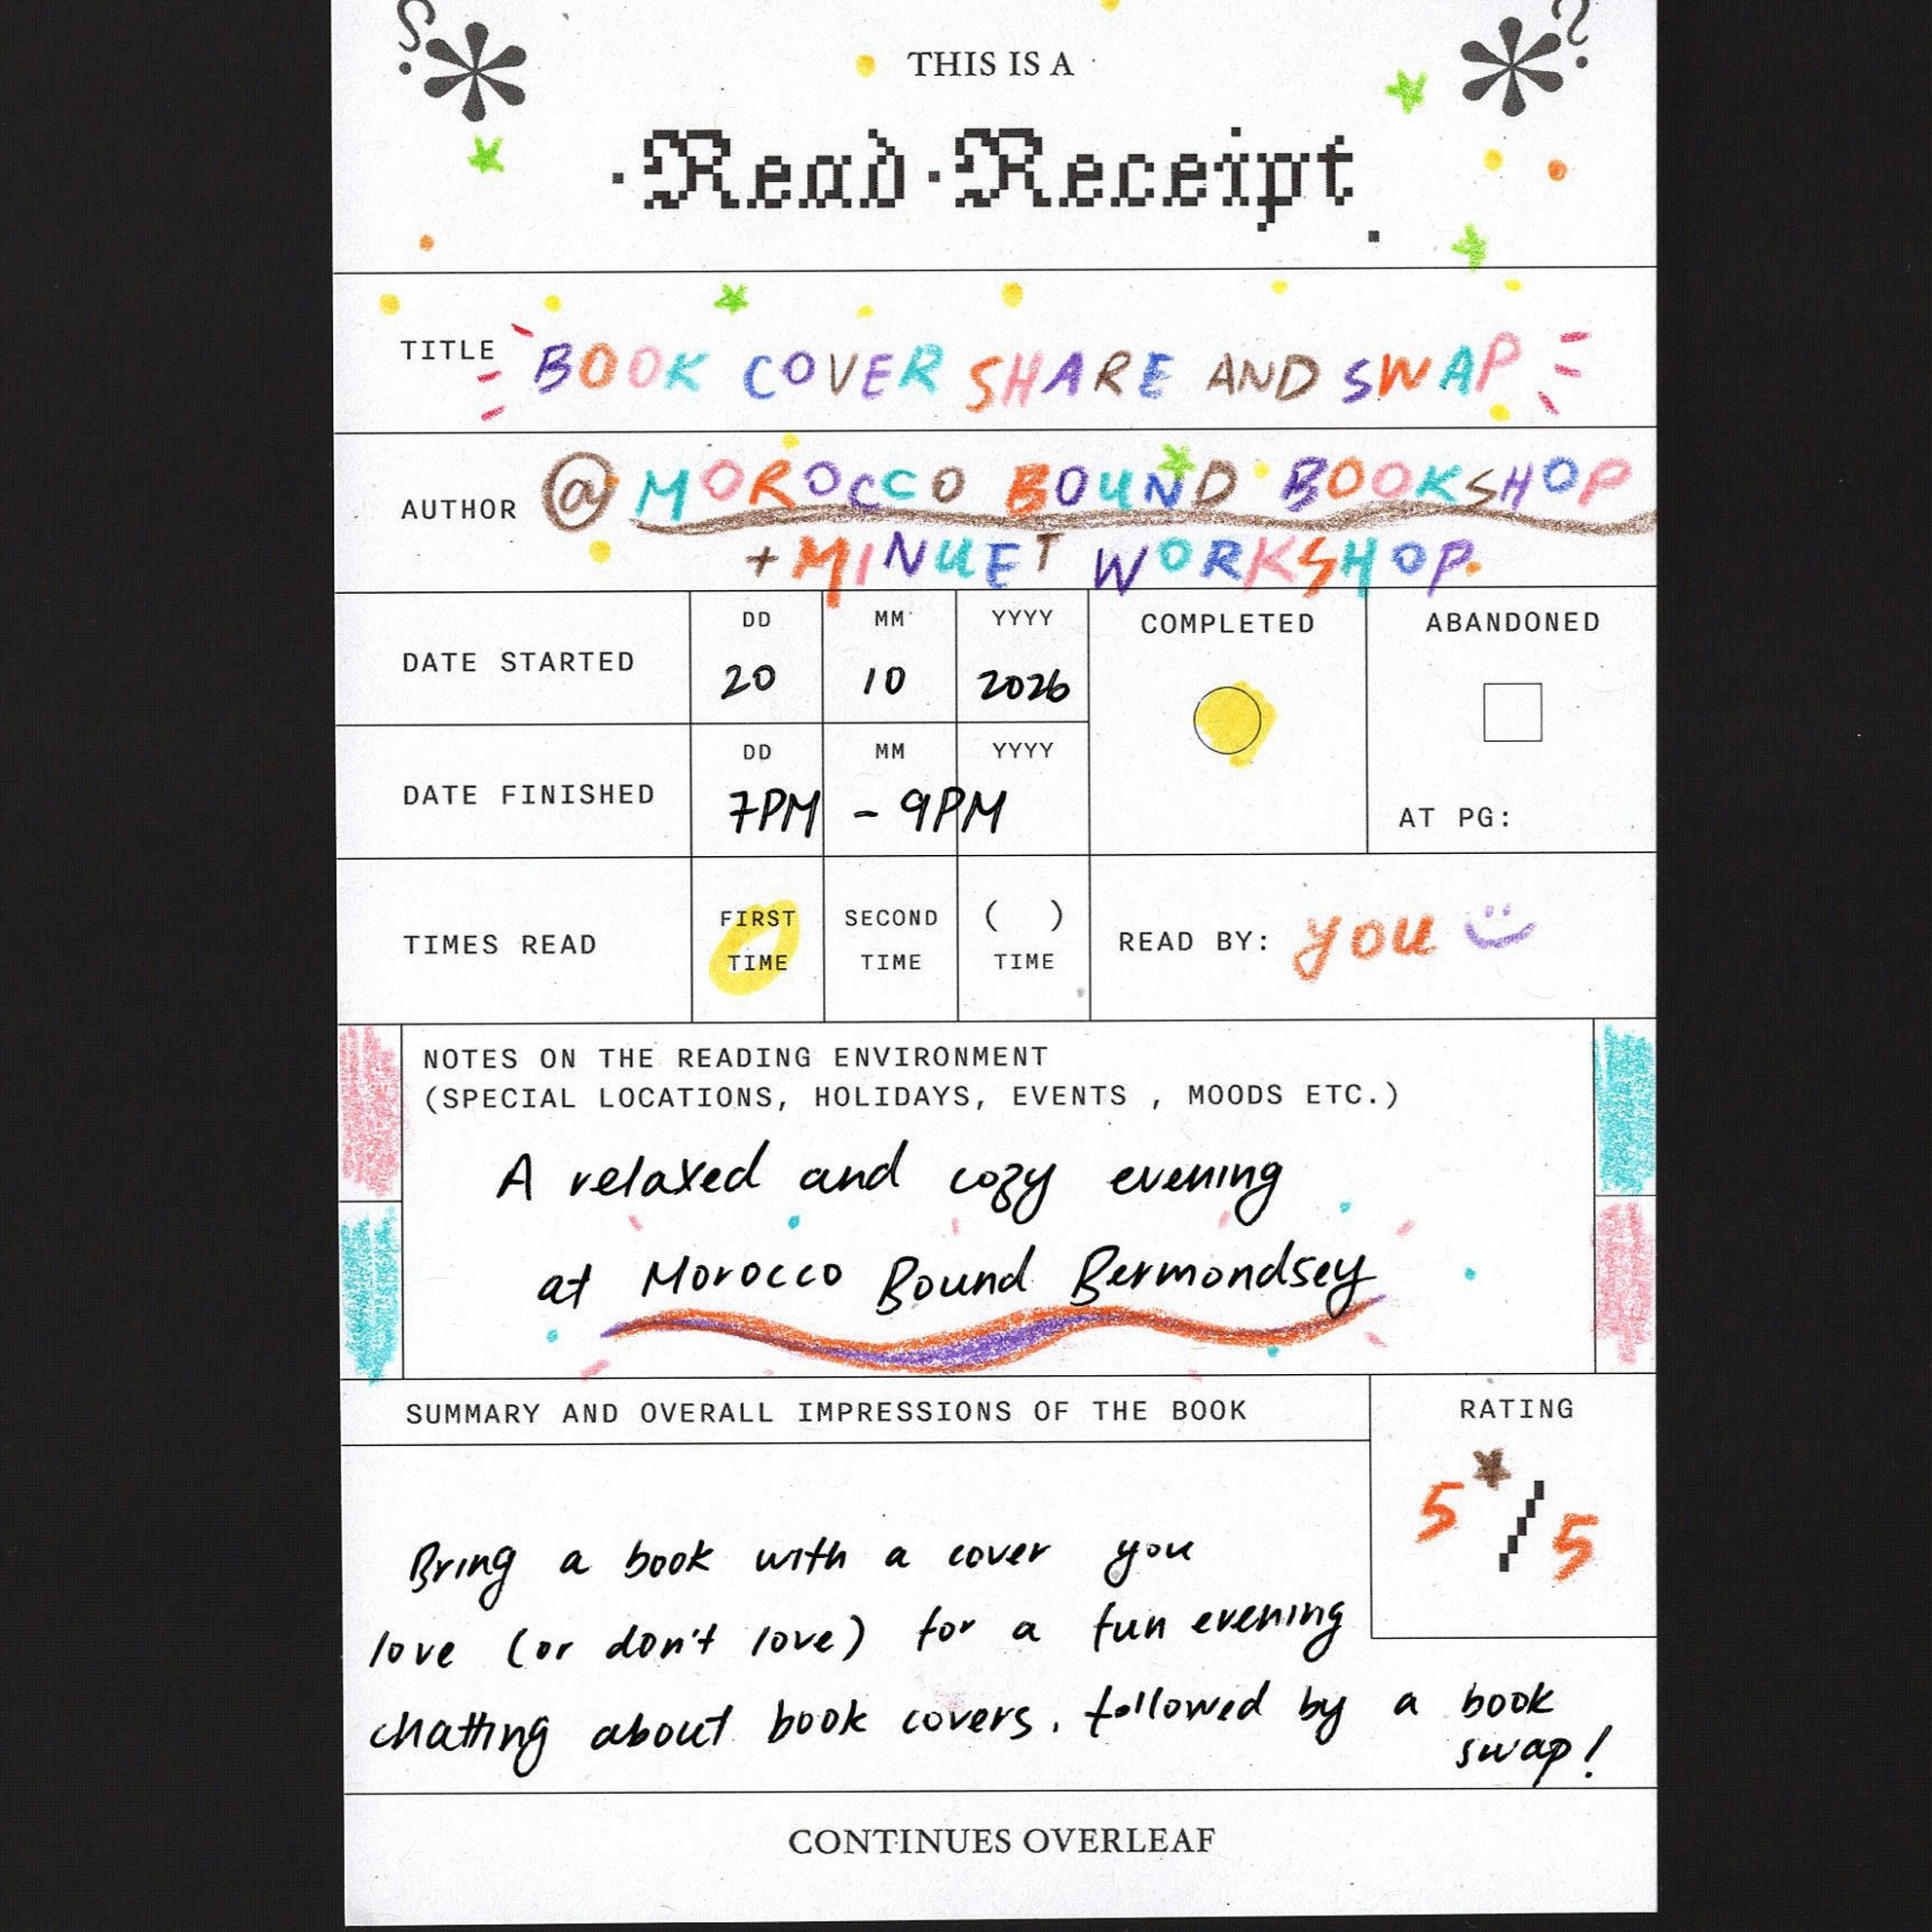 THIS IS A
Read Receipt
TITLE BOOK COVER SHARE AND SWAP
AUTHOR @ MOROCCO BOUND BOOKSHOP
+ MINUET WORKSHOP.
DATE STARTED
DD MM YYYY
20 10 2026
COMPLETED
ABANDONED
AT PG:
DATE FINISHED
DD MM YYYY
7PM - 9PM
TIMES READ
FIRST TIME
SECOND TIME
( ) TIME
READ BY: you
NOTES ON THE READING ENVIRONMENT
(SPECIAL LOCATIONS, HOLIDAYS, EVENTS , MOODS ETC.)
A relaxed and cozy evening
at Morocco Bound Bermondsey
SUMMARY AND OVERALL IMPRESSIONS OF THE BOOK
RATING
5/5
Bring a book with a cover you
love (or don't love) for a fun evening
chatting about book covers, followed by a book
swap!
CONTINUES OVERLEAF